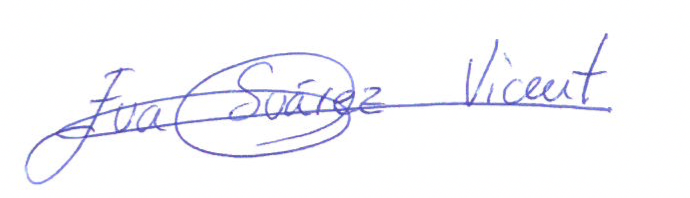 Eva Suárez Vicent